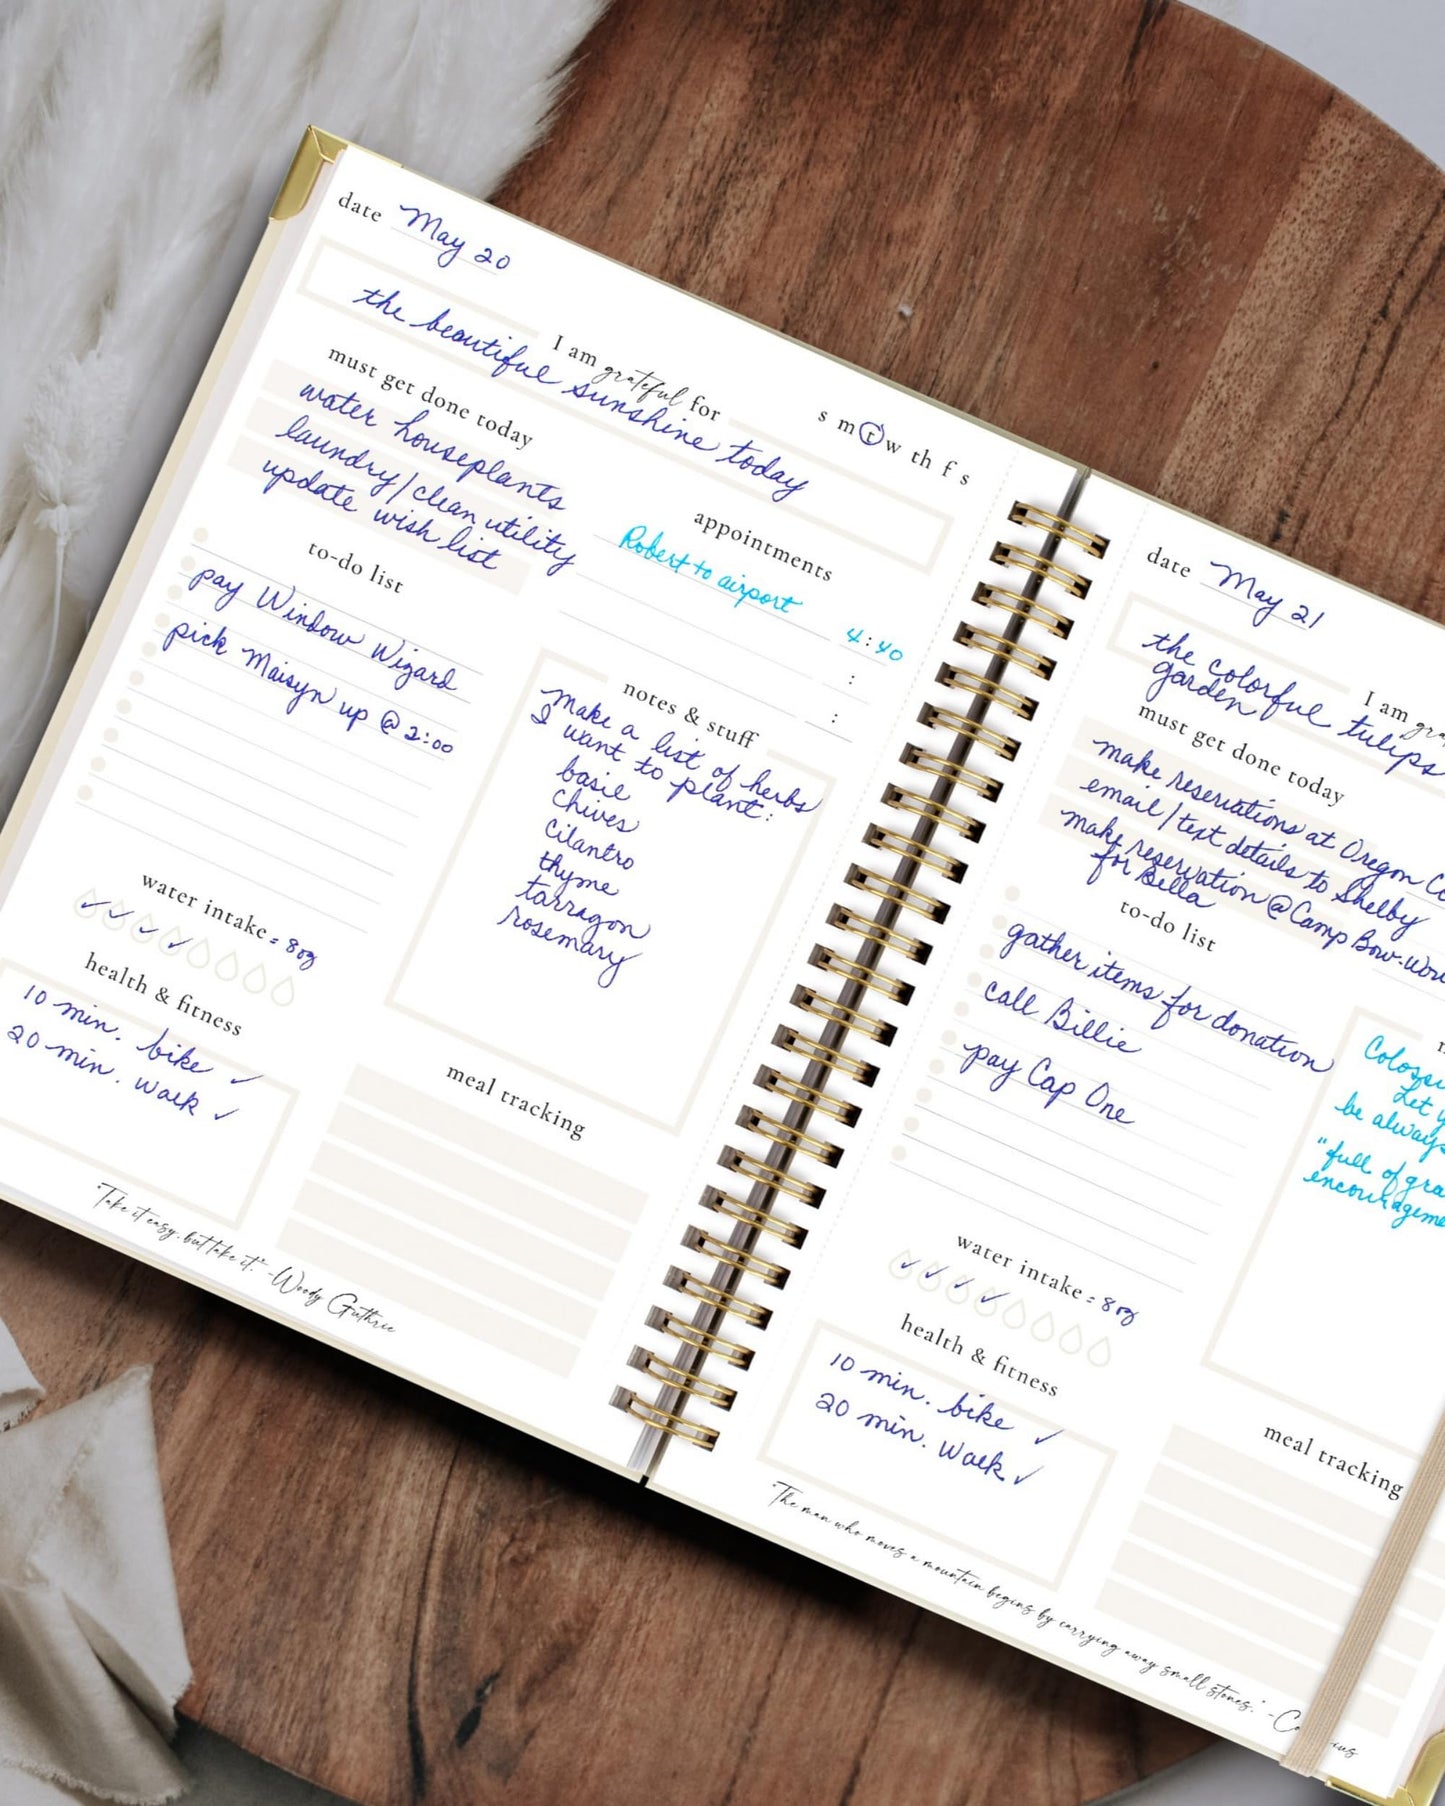 date May 20
I am grateful for
the beautiful sunshine today
s m t w th f s
must get done today
water houseplants
laundry/clean utility
update wish list
appointments
Robert to airport 4:40
:
:
to-do list
pay Window Wizard
pick Maisyn up @ 2:00
notes & stuff
Make a list of herbs
I want to plant:
basil
chives
cilantro
thyme
tarragon
rosemary
water intake = 8oz
health & fitness
10 min. bike ✓
20 min. walk ✓
meal tracking
"Take it easy, but take it." -Woody Guthrie
date May 21
I am
the colorful tulips
garden
must get done today
make reservations at Oregon
email/text details to Shelby
make reservation @ Camp Bow-Wow
for Bella
to-do list
gather items for donation
call Billie
pay Cap One
Let
be always
"full of
water intake = 8oz
health & fitness
10 min. bike ✓
20 min. walk ✓
meal tracking
"The man who moves a mountain begins by carrying away small stones." -